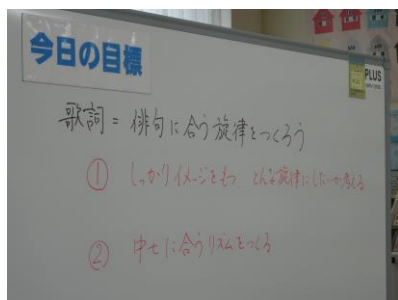 今日の目標
PLUS
歌詞=俳句に合う旋律をつくろう
① しっかりイメージをもつ どんな旋律にしたいか考える
② 中七に合うリズムをつくる